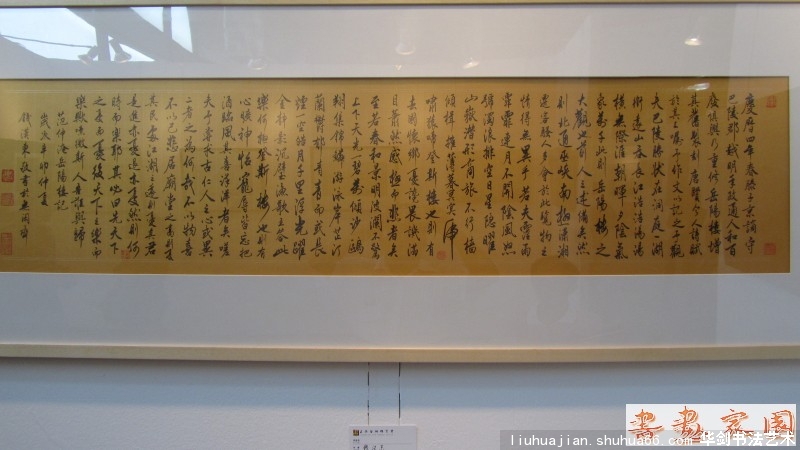 慶曆四年春滕子京謫守
巴陵郡越明年政通人和百
廢俱興乃重修岳陽樓增
其舊制刻唐賢今人詩賦
於其上屬予作文以記之予觀
夫巴陵勝狀在洞庭一湖
銜遠山吞長江浩浩湯湯
橫無際涯朝暉夕陰氣
象萬千此則岳陽樓之
大觀也前人之述備矣然
則北通巫峽南極瀟湘
遷客騷人多會於此覽物之
情得無異乎若夫霪雨
霏霏連月不開陰風怒
號濁浪排空日星隱曜
山嶽潛形商旅不行檣
傾楫摧薄暮冥冥虎
嘯猿啼登斯樓也則有
去國懷鄉憂讒畏譏滿
目蕭然感極而悲者矣
至若春和景明波瀾不驚
上下天光一碧萬頃沙鷗
翔集錦鱗游泳岸芷汀
蘭郁郁青青而或長
煙一空皓月千里浮光躍
金靜影沉璧漁歌互答此
樂何極登斯樓也則有
心曠神怡寵辱皆忘把
酒臨風其喜洋洋者矣嗟
夫予嘗求古仁人之心或異
二者之為何哉不以物喜
不以己悲居廟堂之高則憂
其民處江湖之遠則憂其君
是進亦憂退亦憂然則何
時而樂耶其必曰先天下
之憂而憂後天下之樂而
樂歟噫微斯人吾誰與歸
范仲淹岳陽樓記
歲次辛卯仲夏
錢漢東敬書
書畫家園
liuhuajian.shuhua66.com 华剑书法艺术